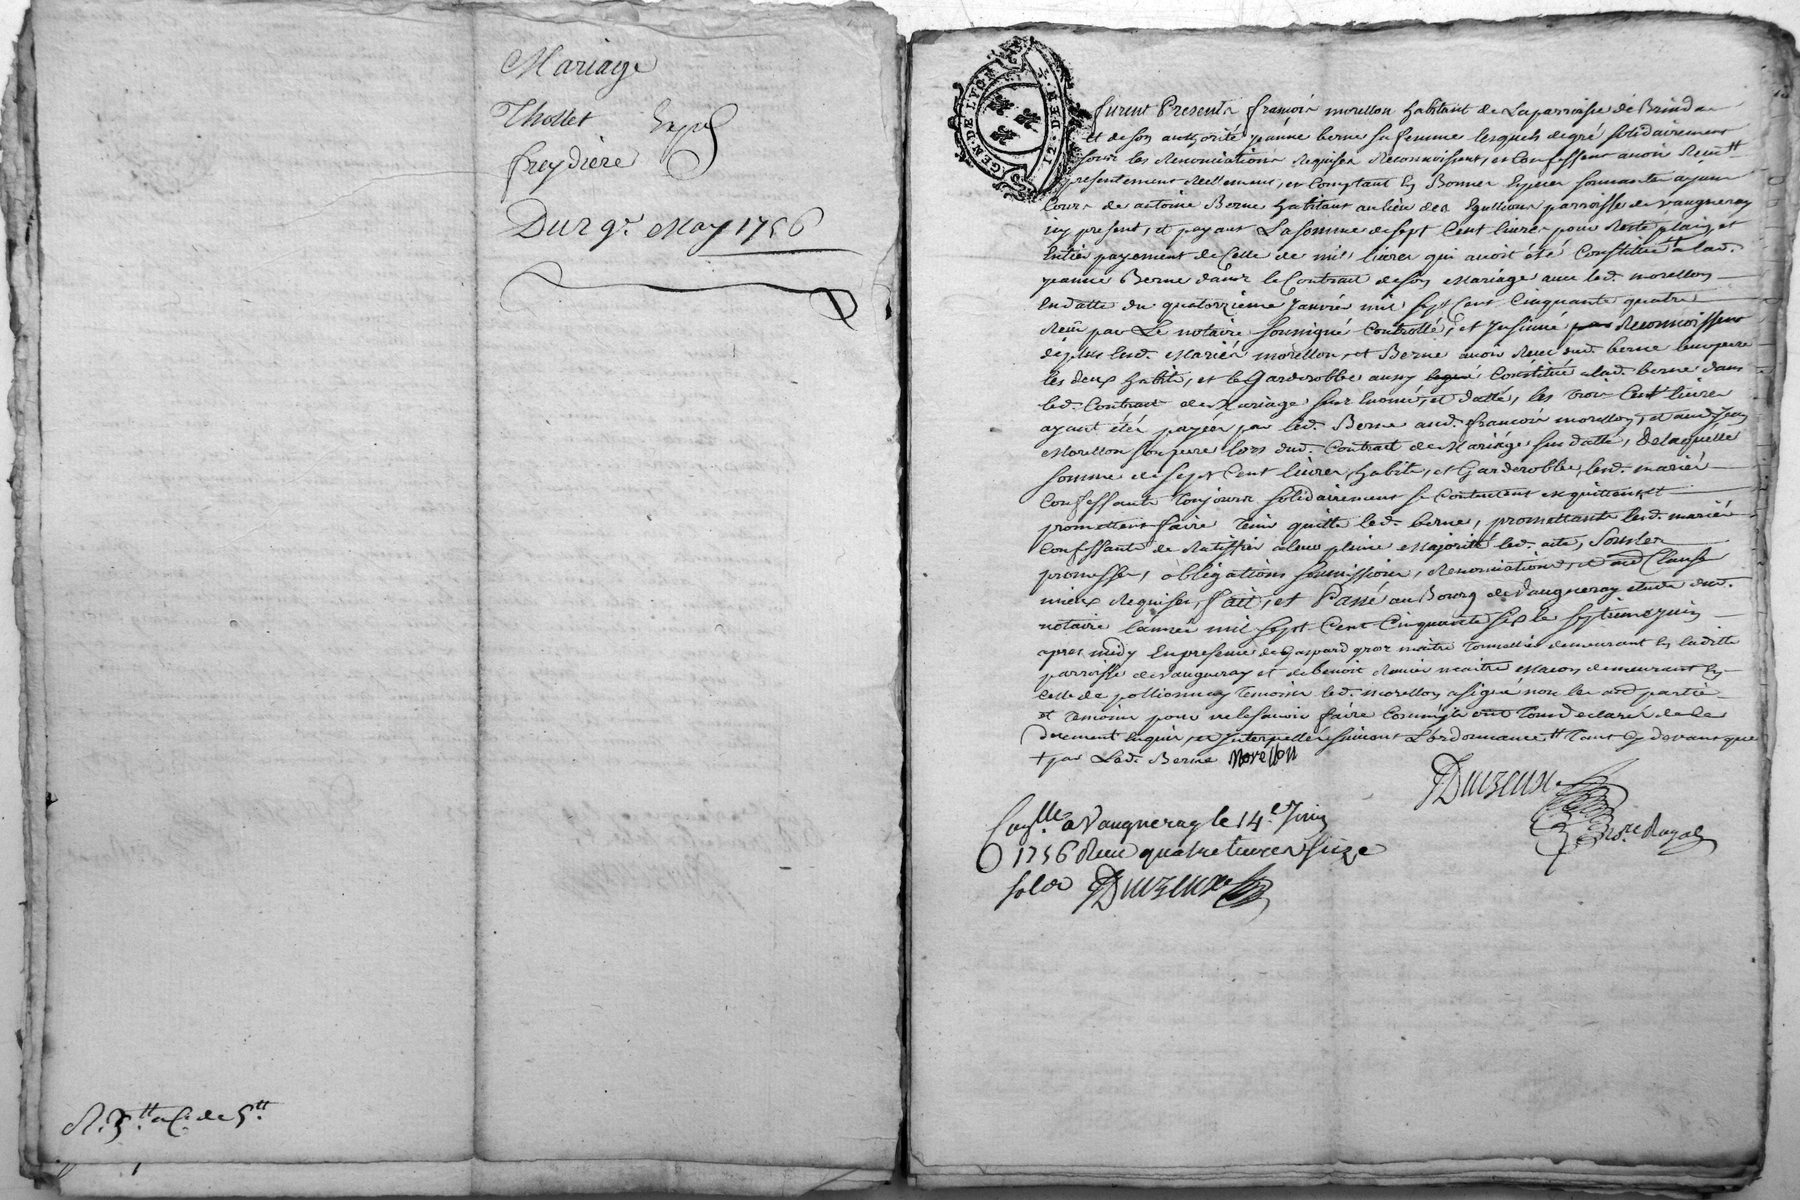 Mariage
Thollet
freydiere
Du 29e. May 1756
R. 3tt
de 5tt
GEN. DE LYON
12. DEN.
furent Presents françois morellon habitant de La parroisse de Brindas
et de son authorité jeanne berne sa femme lesquels de gré solidairement
sous les Renonciations Requises Reconnoissent, et Confessent avoir Receu
presentement Reellement, et Comptant En Bonnes Especes sonnantes ayant
Cours de antoine Berne habitant au lieu des parroisse de vaugneray
icy present, et payant La somme de sept Cent livres pour Reste plain, et
Entier payement de Celle de mil livres qui avoit été Constituée a lad.
jeanne Berne dans le Contrat de son Mariage avec led. morellon
En datte du quatorzieme Janvier mil sept Cent Cinquante quatre
Receu par Le notaire soussigné Controllé, et Insinué Reconnoissent
de plus lesd. Mariés morellon, et Berne avoir Receu dud. berne leur pere
les deux habits, et le Garderobbe aussy Constitué a lad. berne dans
led. Contrat de Mariage sus Enoncé, et datté, les trois Cent livres
ayant étés payées par led. Berne aud. françois morellon, et aud. Jean
Morellon son pere lors dud. Contrat de Mariage sus datté, De laquelle
somme de sept Cent livres, habits, et Garderobbe, lesd. mariés
Confessants toujours solidairement se Contentent en quittent, et
promettent faire tenir quitte led. berne, promettants lesd. mariés
Confessants de Ratiffier a leur pleine Majorité led. acte, sous les
promesses, obligations soumissions, Renonciations, et aud Clauses
mieux Requises, fait, et Passé au Bourg de Vaugneray etude dud.
notaire l'année mil sept Cent Cinquante six le septieme juin
apres midy En presence de Gaspard gros maitre tonnellier demeurant En laditte
parroisse de vaugneray et de benoit maitre Macon demeurant En
Celle de pollionnay temoins led. morellon a signé non les aud parties
et temoins pour ne le savoir faire Comme ils ont declaré de ce
Deuement Enquis, et Interpellés suivant L'ordonnance tt tant Cy devant que
+ par Lad. Berne Morellon
Duizeux
Nore. Royal
Conlle a Vaugneray le 14e. Juin
1756 Receu quatre livres Seize
sols Duizeux